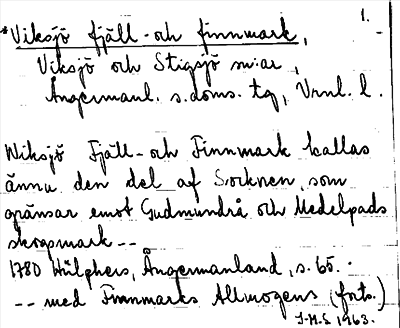 1.
*Viksjö fjäll- och finnmark,
Viksjö och Stigsjö sn:ar,
Ångermanl. s. doms. tg, Vrnl. l.
Wiksjö Fjäll- och Finnmark kallas
ännu den del af Socknen, som
gränsar emot Gudmundrå och Medelpads
skogsmark --
1780 Hülphers, Ångermanland, s. 65.
-- med Finnmarks Allmogens (forts.)
1963.